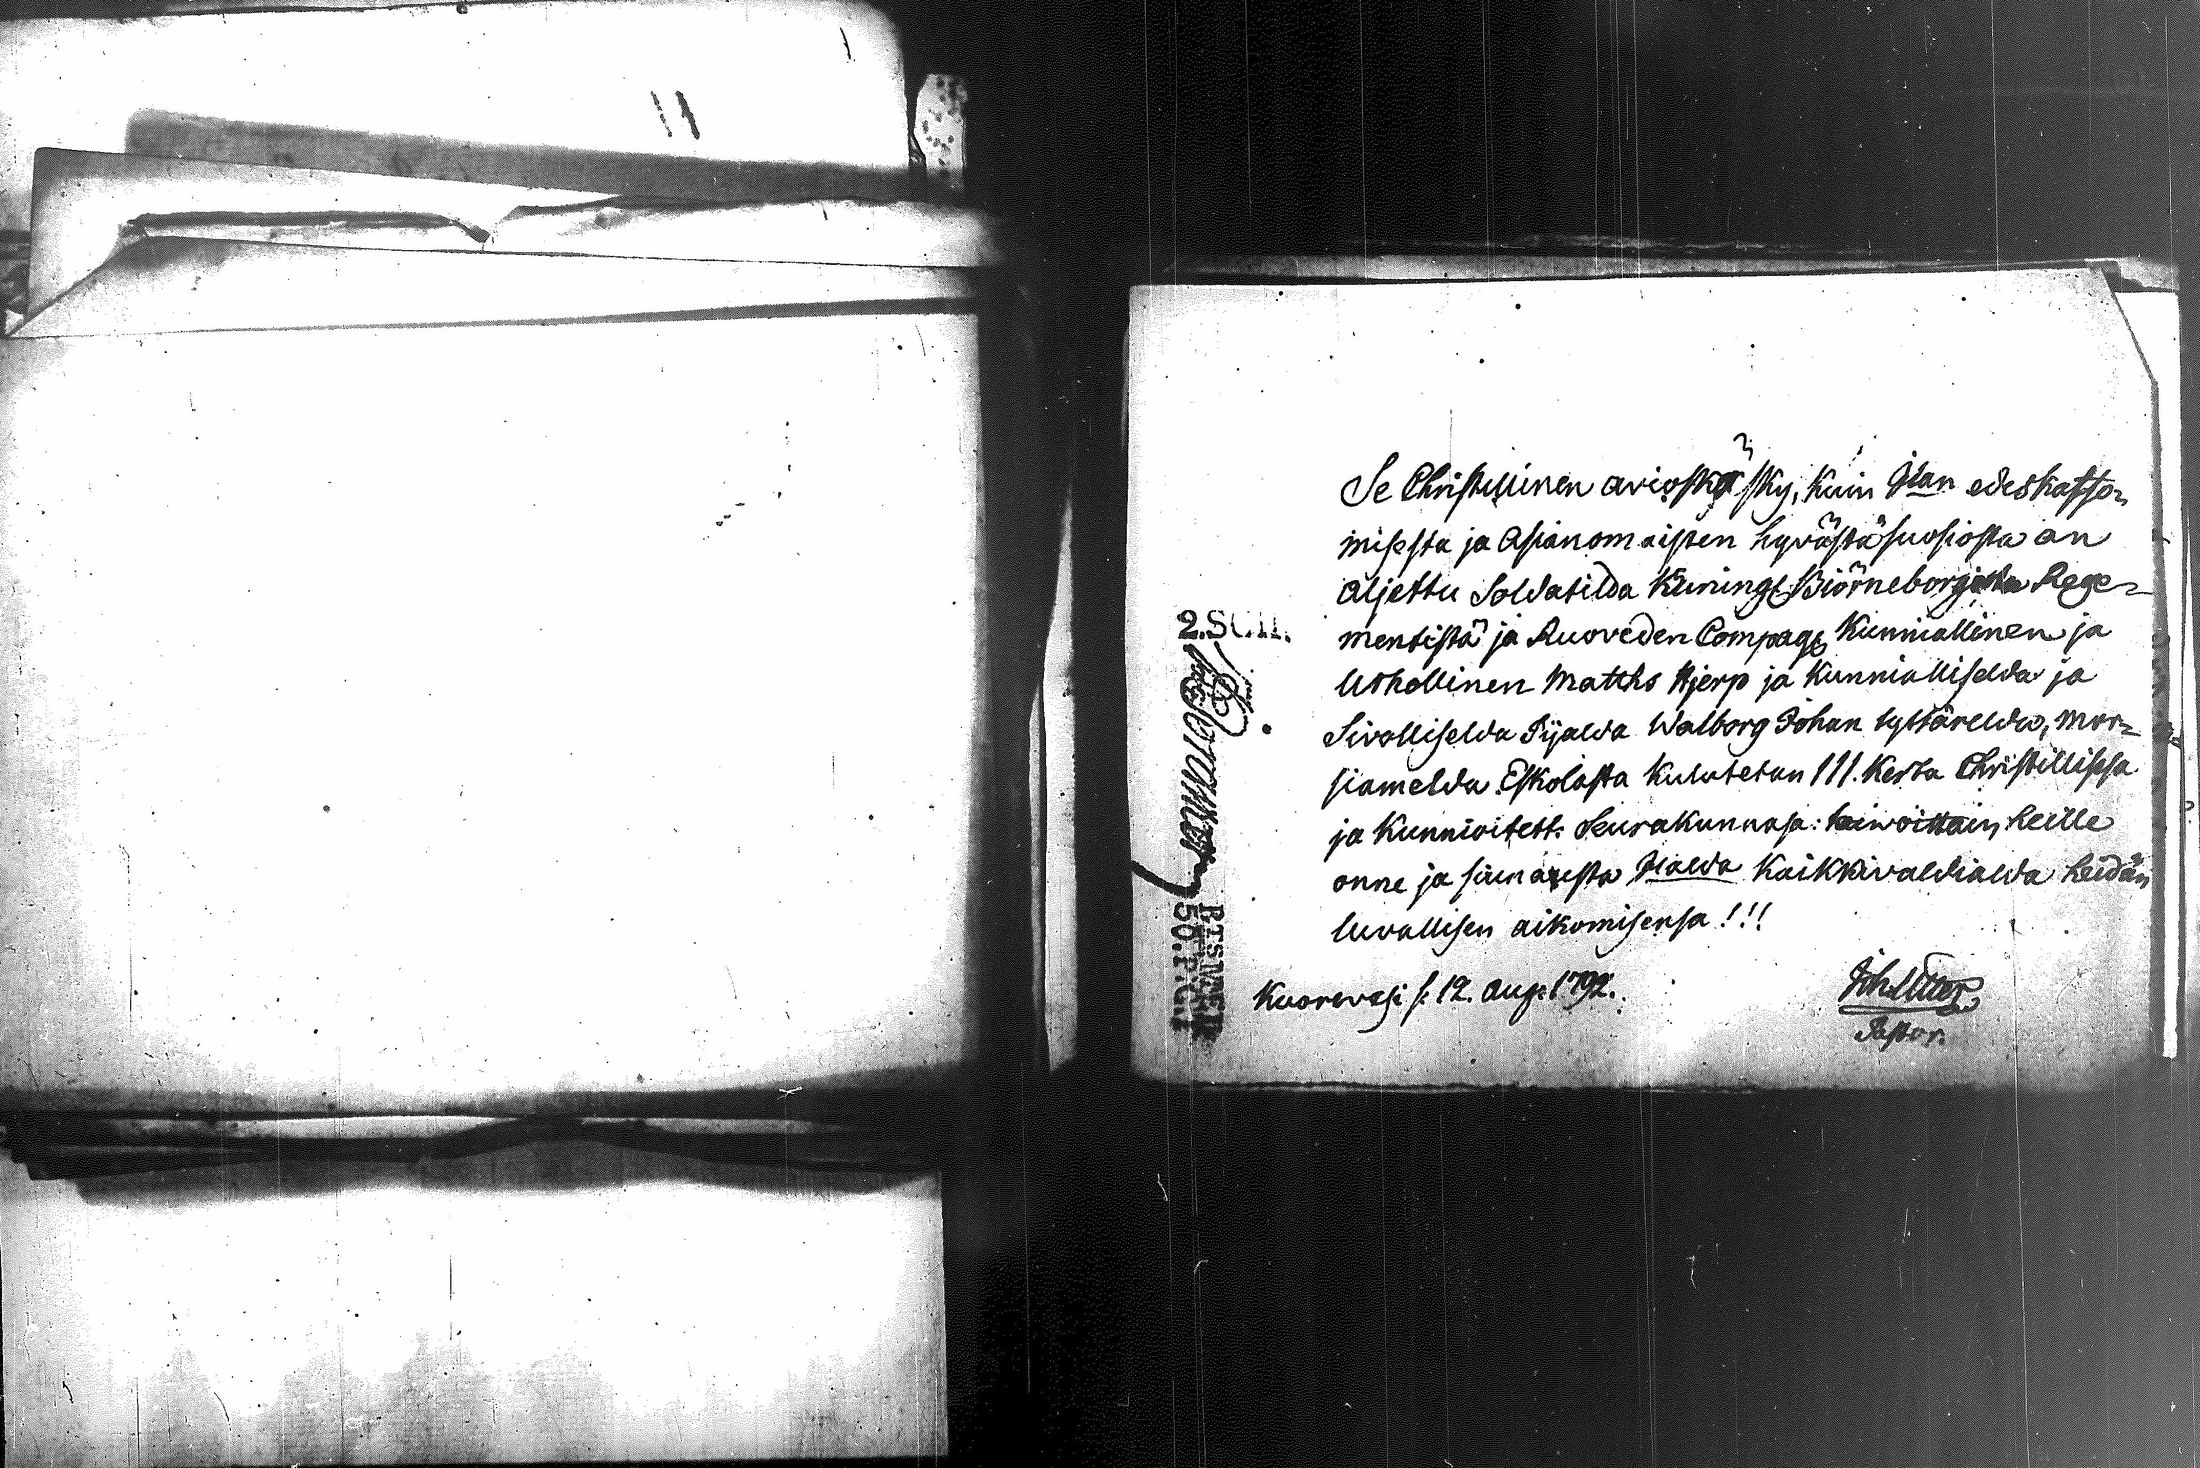 Se Christillinen aviosKäsKy, Kuin Jlan edeskatso-
misesta ja Asianomaisten hyvästä suosiosta on
Aljettu Soldatilda Kuningl Biörneborgista Rege-
mentistä ja Ruoveden Compag: Kunniallinen ja
Urhollinen Matths Hjerp ja Kunnialliselda ja
Sivolliselda Pijalda Walborg Johan tyttäreldä, Mor-
siamelda Eskolasta Kulutetan III. Kerta Christillisesä
ja Kunnioitett: Seurakunnasa: toiwoittain heille
onne ja siunausta Jlalda Kaikkivaldialda heidän
luvallisen aikomisensa!!!
Kuorevesi s: 12. Aug: 1792.
Pastor.
2.SCH.
50.P.G.